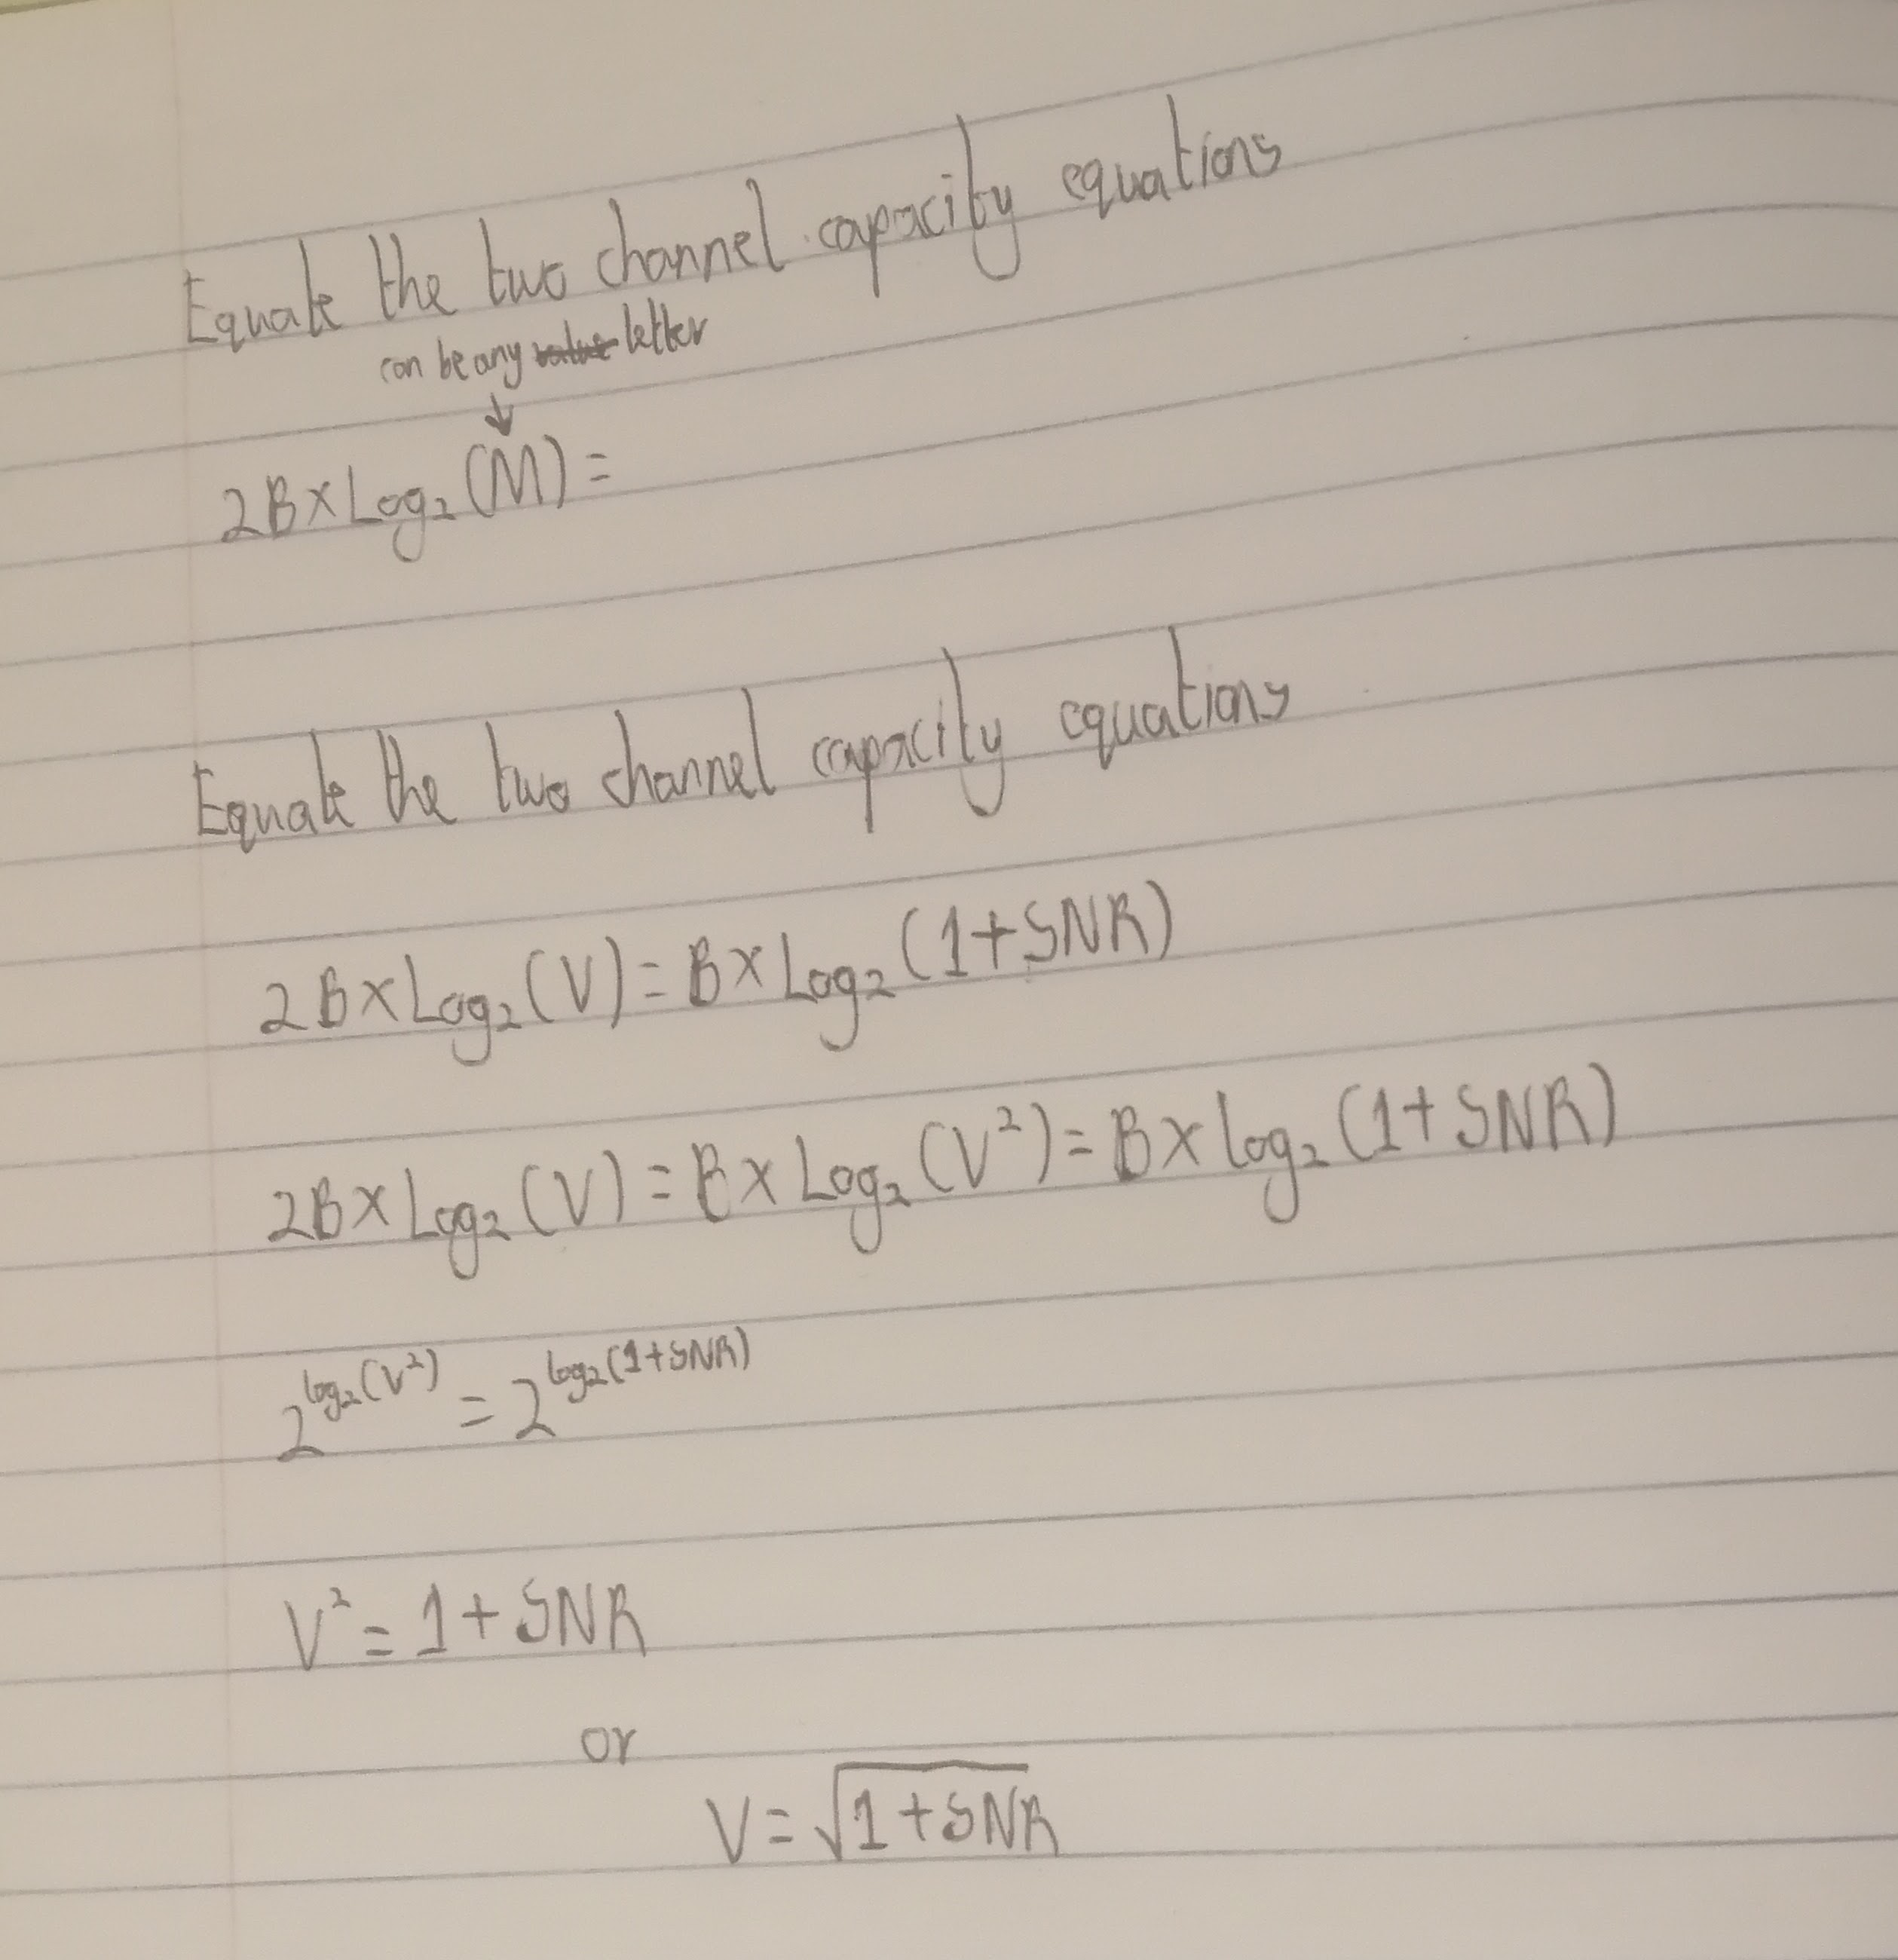 Equate the two channel capacity equations
can be any value letter
↓
2B×Log₂(M)=
Equate the two channel capacity equations
2B×Log₂(V)=B×Log₂(1+SNR)
2B×Log₂(V)=B×Log₂(V²)=B×log₂(1+SNR)
2^log₂(V²) = 2^log₂(1+SNR)
V²=1+SNR
or
V=√(1+SNR)